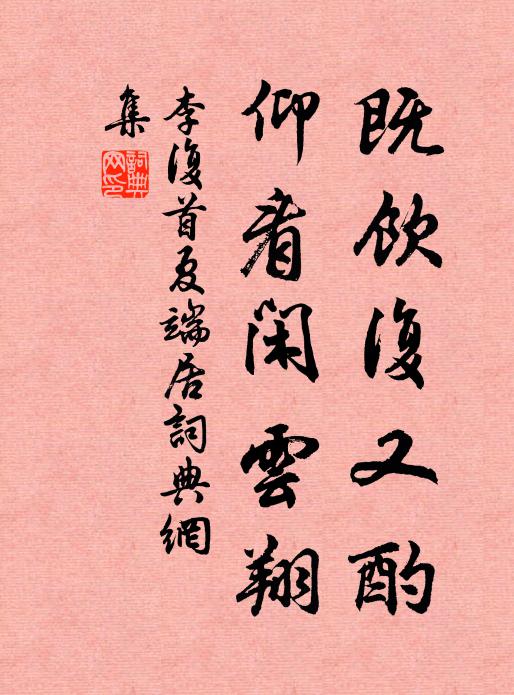 既飲復又酌
仰看閑雲翔
李復首夏端居詞典網
集
詞典
网印